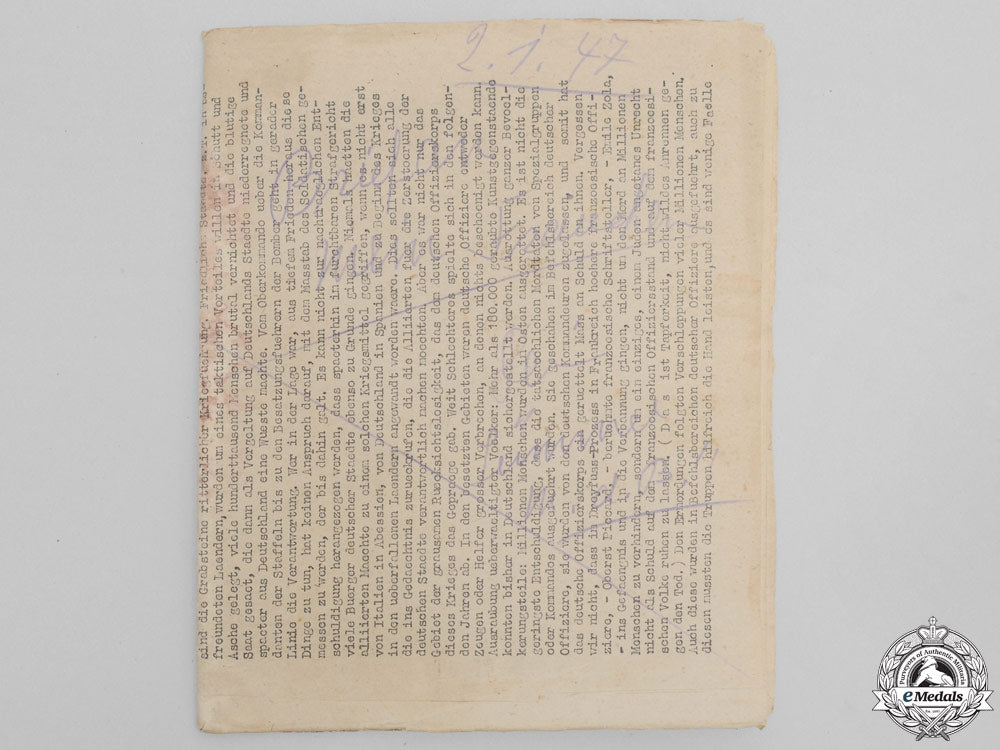 2.1.47
sind die Grabsteine ritterlicher Kriegfuehrung. Friedliche Staedte, z.T. in be-
freundeten Laendern, wurden um eines taktischen Vorteiles willen in Schutt und
Asche gelegt, viele hunderttausend Menschen brutal vernichtet und die blutige
Saat gesaet, die dann als Vergeltung auf Deutschlands Staedte niederregnete und
spaeter aus Deutschland eine Wueste machte. Vom Oberkommando ueber die Komman-
danten der Staffeln bis zu den Besatzungsfuehrern der Bomber geht in gerader
Linie die Verantwortung. Wer in der Lage war, aus tiefem Frieden heraus diese
Dinge zu tun, hat keinen Anspruch darauf, mit dem Masstab des Soldatischen ge-
messen zu werden, der bis dahin galt. Es kann nicht zur nachtraeglichen Ent-
schuldigung herangezogen werden, dass spaeterhin in furchtbaren Strafgericht
viele Buerger deutscher Staedte ebenso zu Grunde gingen. Niemals haetten die
alliierten Maechte zu einem solchen Kriegsmittel gegriffen, wenn es nicht erst
von Italien in Abessien, von Deutschland in Spanien und zu Beginn des Krieges
in den ueberfallenen Laendern angewandt worden waere. Dies sollten sich alle
die ins Gedaechtnis zurueckrufen, die die Alliierten fuer die Zerstoerung der
deutschen Staedte verantwortlich machen moechten. Aber es war nicht nur das
Gebiet der grausamen Ruecksichtlosigkeit, das dem deutschen Offizierskorps
dieses Krieges das Gepraege gab. Weit Schlechteres spielte sich in den folgen-
den Jahren ab. In den besetzten Gebieten waren deutsche Offiziere entweder
Zeugen oder Helfer grosser Verbrechen, an denen nichts beschoenigt werden kann.
Ausraubung ueberwaeltigter Voelker: Mehr als 180.000 geraubte Kunstgegenstaende
konnten bisher in Deutschland sichergestellt werden. Ausrottung ganzer Bevoel-
kerungsteile: Millionen Menschen wurden im Osten ausgerottet. Es ist nicht die
geringste Entschuldigung, dass die tatsaechlichen Mordtaten von Spezialgruppen
oder Kommandos ausgefuehrt wurden. Sie geschahen im Befehlsbereich deutscher
Offiziere, sie wurden von den deutschen Kommandeuren zugelassen, und somit hat
das deutsche Offizierskorps ein geruettelt Mass an Schuld an ihnen. Vergessen
wir nicht, dass im Dreyfus-Prozess in Frankreich hoehere franzoesische Offi-
ziere, - Oberst Picard, - beruehmte franzoesische Schriftsteller, - Emile Zola,
- ins Gefaengnis und in die Verbannung gingen, nicht um den Mord an Millionen
Menschen zu verhindern, sondern um ein einziges, einem Juden angetanes Unrecht
nicht als Schuld auf den franzoesischen Offiziersstand und auf dem franzoesi-
schen Volke ruhen zu lassen. (D a s ist Tapferkeit, nicht wildes Anrennen ge-
gen den Tod.) Den Ermordungen folgten Verschleppungen vieler Millionen Menschen.
Auch diese wurden in Befehlsbereichen deutscher Offiziere ausgefuehrt, auch zu
diesen mussten die Truppen hilfreich die Hand leisten, und es sind wenige Faelle
eMedals